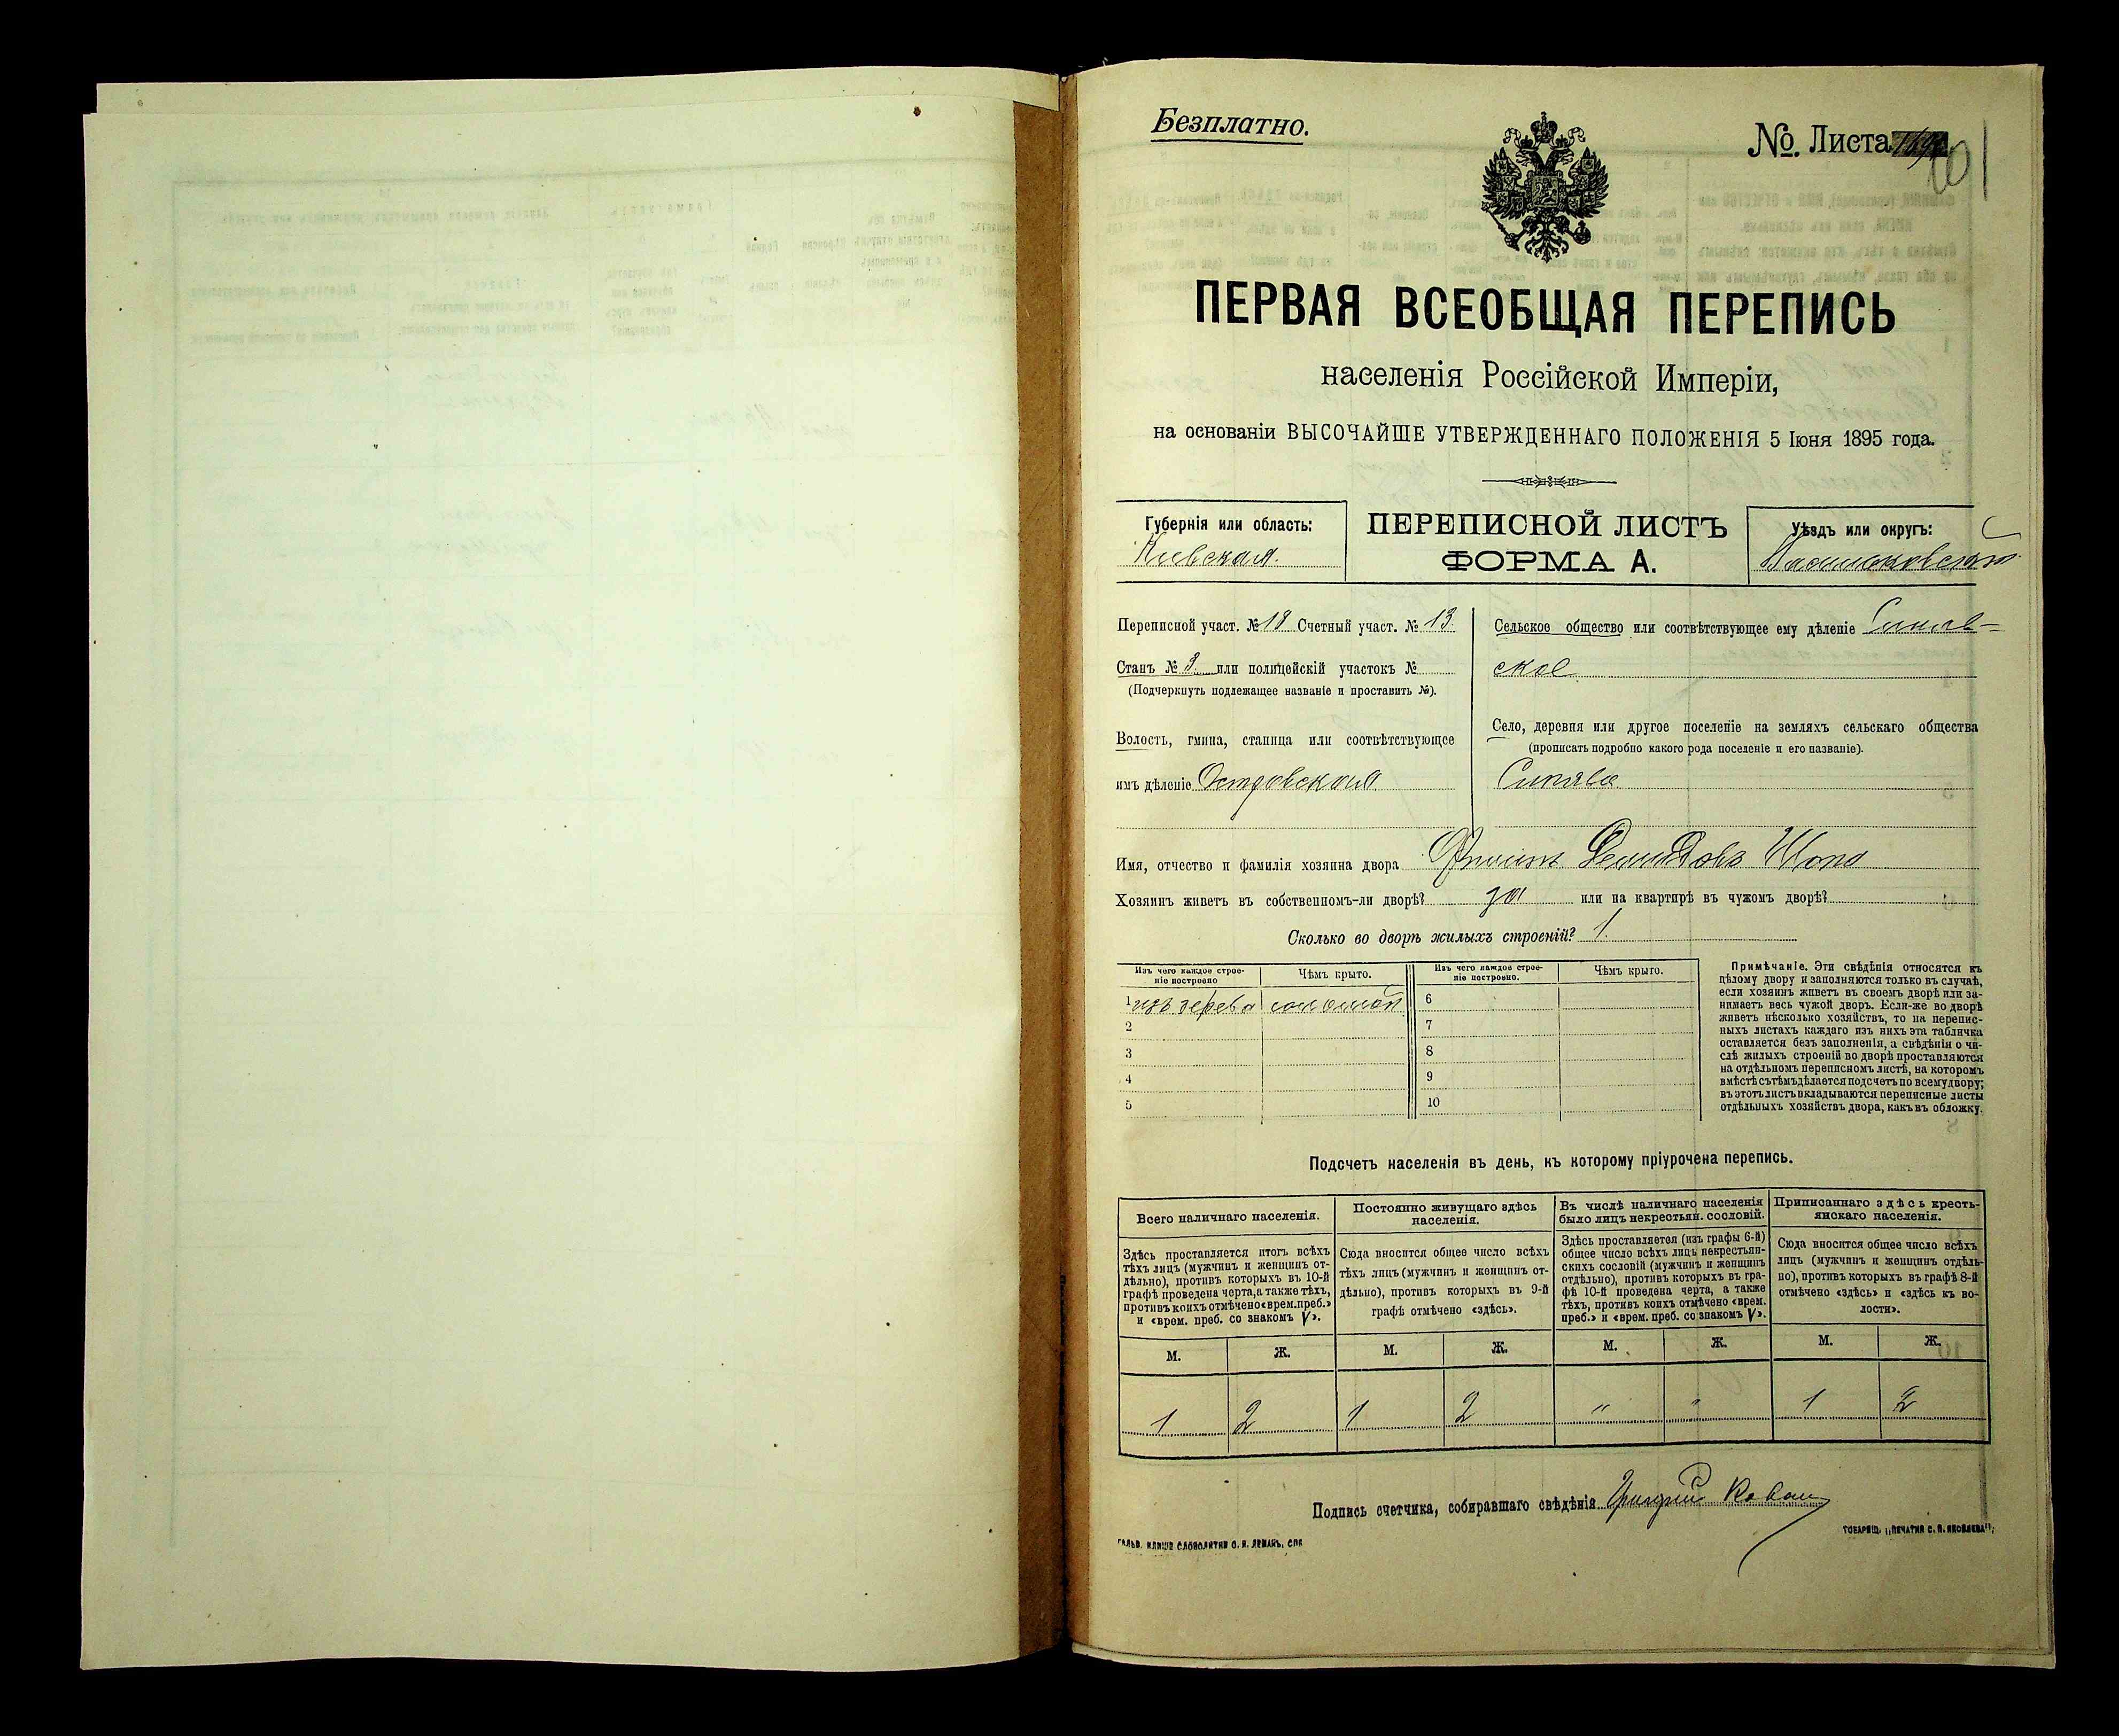 Безплатно.
№ Листа 101
ПЕРВАЯ ВСЕОБЩАЯ ПЕРЕПИСЬ
населенія Россійской Имперіи,
на основаніи ВЫСОЧАЙШЕ УТВЕРЖДЕННАГО ПОЛОЖЕНІЯ 5 Іюня 1895 года.
Губернія или область:
Кіевская.
ПЕРЕПИСНОЙ ЛИСТЪ
ФОРМА А.
Уѣздъ или округъ:
Васильковский
Переписной участ. № 18 Счетный участ. № 13.
Станъ № 3. или полицейскій участокъ №
(Подчеркнуть подлежащее названіе и проставить №).
Волость, гмина, станица или соотвѣтствующее
имъ дѣленіе Островская
Сельское общество или соотвѣтствующее ему дѣленіе Синяв-
ское
Село, деревня или другое поселеніе на земляхъ сельскаго общества
(прописать подробно какого рода поселеніе и его названіе).
Синява
Имя, отчество и фамилія хозяина двора Филипъ Демидовъ Шопа
Хозяинъ живетъ въ собственномъ-ли дворѣ? да или на квартирѣ въ чужомъ дворѣ?
Сколько во дворѣ жилыхъ строеній? 1.
Изъ чего каждое строе-
ніе построено
Чѣмъ крыто.
Изъ чего каждое строе-
ніе построено.
Чѣмъ крыто.
1 изъ дерева соломой
2
3
4
5
6
7
8
9
10
Примѣчаніе. Эти свѣдѣнія относятся къ
цѣлому двору и заполняются только въ случаѣ,
если хозяинъ живетъ въ своемъ дворѣ или за-
нимаетъ весь чужой дворъ. Если-же во дворѣ
живетъ нѣсколько хозяйствъ, то на перепис-
ныхъ листахъ каждаго изъ нихъ эта табличка
оставляется безъ заполненія, а свѣдѣнія о чи-
слѣ жилыхъ строеній во дворѣ проставляются
на отдѣльномъ переписномъ листѣ, на которомъ
вмѣстѣ съ тѣмъ дѣлается подсчетъ по всему двору;
въ этотъ листъ вкладываются переписные листы
отдѣльныхъ хозяйствъ двора, какъ въ обложку.
Подсчетъ населенія въ день, къ которому пріурочена перепись.
Всего наличнаго населенія.
Здѣсь проставляется итогъ всѣхъ
тѣхъ лицъ (мужчинъ и женщинъ от-
дѣльно), противъ которыхъ въ 10-й
графѣ проведена черта, а также тѣхъ,
противъ коихъ отмѣчено «врем. преб.»
и «врем. преб. со знакомъ V».
Постоянно живущаго здѣсь
населенія.
Сюда вносится общее число всѣхъ
тѣхъ лицъ (мужчинъ и женщинъ от-
дѣльно), противъ которыхъ въ 9-й
графѣ отмѣчено «здѣсь».
Въ числѣ наличнаго населенія
было лицъ некрестьян. сословій.
Здѣсь проставляется (изъ графы 6-й)
общее число всѣхъ лицъ некрестьян-
скихъ сословій (мужчинъ и женщинъ
отдѣльно), противъ которыхъ въ гра-
фѣ 10-й проведена черта, а также
тѣхъ, противъ коихъ отмѣчено «врем.
преб.» и «врем. преб. со знакомъ V».
Приписаннаго здѣсь кресть-
янскаго населенія.
Сюда вносится общее число всѣхъ
лицъ (мужчинъ и женщинъ отдѣль-
но), противъ которыхъ въ графѣ 8-й
отмѣчено «здѣсь» и «здѣсь къ во-
лости».
М. Ж. М. Ж. М. Ж. М. Ж.
1 2 1 2 " " 1 2
Подпись счетчика, собиравшаго свѣдѣнія Григрий Коваль
ТОВАРИЩ. „ПЕЧАТНЯ С. П. ЯКОВЛЕВА“